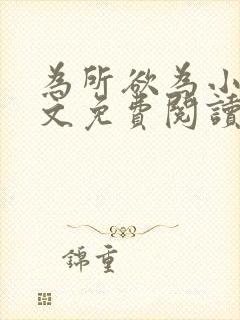 為所欲為小
文免費閱讀
錦重